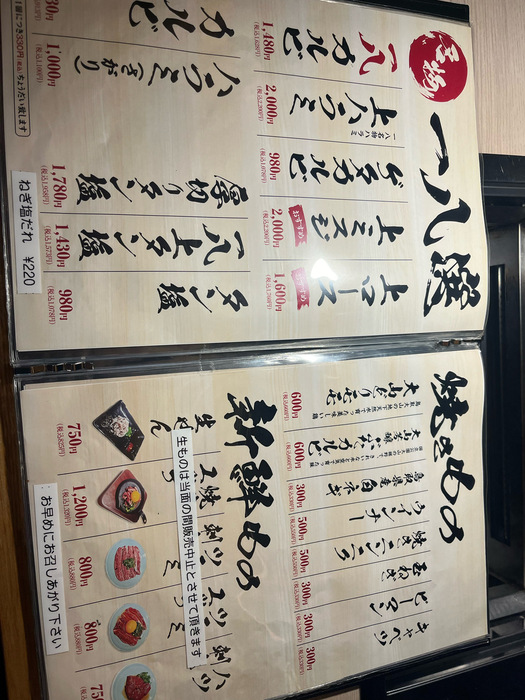 名物
一八選
一八カルビ
1,480円
(税込1,628円)
一八名物ハラミ
上ハラミ
2,000円
(税込2,200円)
ゲタカルビ
980円
(税込1,078円)
上ミスジ
おすすめ
2,000円
(税込2,200円)
上ロース
おすすめ
1,600円
(税込1,760円)
カルビ
30円
ハラミ(さがり)
1,000円
(税込1,100円)
厚切りタン塩
1,780円
(税込1,958円)
一八上タン塩
1,430円
(税込1,573円)
タン塩
980円
(税込1,078円)
につき330円(税込)ちょうだい致します
ねぎ塩だれ ¥220
焼きもの
600円
(税込660円)
600円
(税込660円)
鳥取県産白ネギ
300円
(税込330円)
ウインナー
500円
(税込550円)
焼きニンニク
500円
(税込550円)
玉ねぎ
300円
(税込330円)
ピーマン
300円
(税込330円)
キャベツ
300円
(税込330円)
新鮮もの
生ものは当面の間販売中止とさせて頂きます
750円
(税込825円)
1,200円
(税込1,320円)
800円
(税込880円)
800円
(税込880円)
お早めにお召しあがり下さい